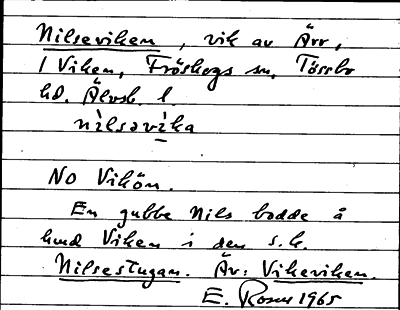 Nilseviken, vik av Ärr,
I Viken, Fröskogs sn, Tössbo
hd. Älvsb. l.
nìlsəvìka
NO Vikön.
En gubbe Nils bodde å
lund Viken i den s.k.
Nilsestugan. Äv: Vikeviken.
E. Rosus 1965